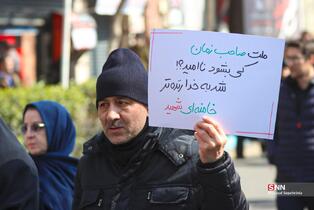 ملت صاحب زمان
کی شود ناامید؟!
شد به خدا زنده‌تر
خامنه‌ای شهید
SNN